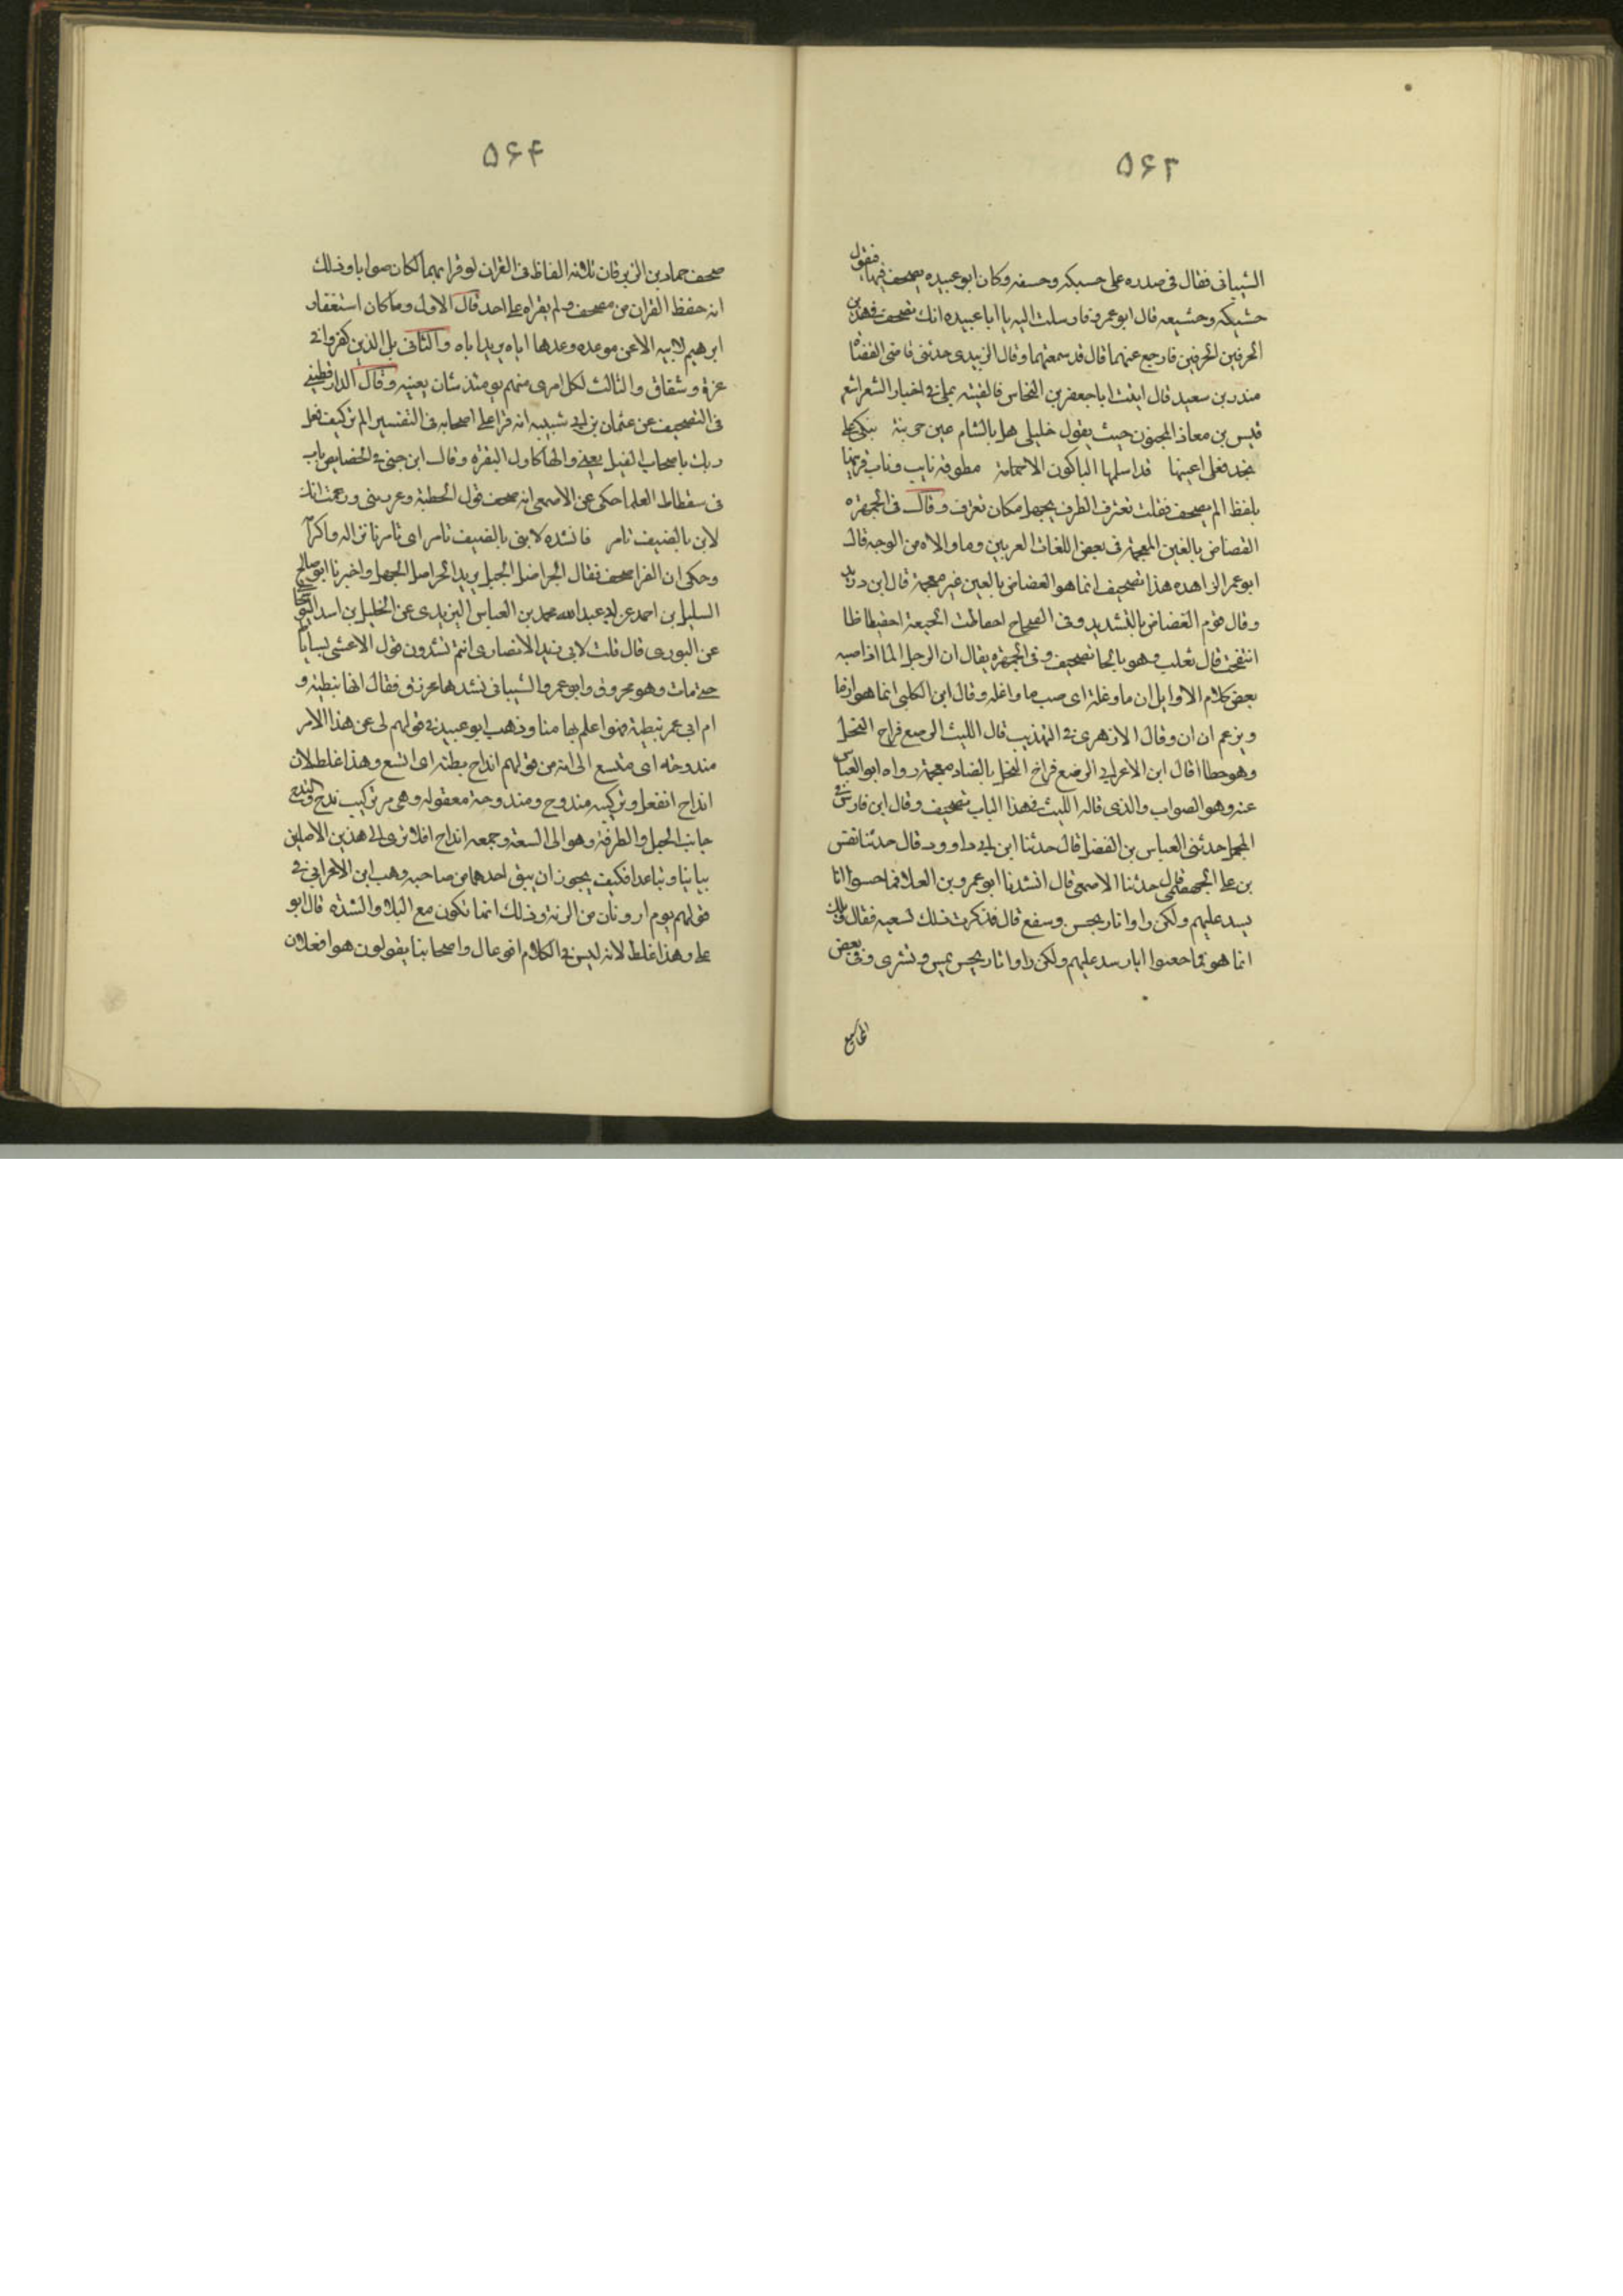 ۵۶۳
الشيبانى فقال فى صدره على حسيكه وحسفه وكان ابو عبيده يصحف فيهما فيقول
حشيكه وحشيعه قال ابو عمرو فارسلت اليه يا ابا عبيده انك تصحف فى هذين
الحرفين الحرفين فارجع عنهما قال قد سمعتهما وقال الزبيدى حدثنى قاضى القضاه
منذر بن سعيد قال اتيت ابا جعفر بن النحاس فالفيته يملى فى اخبار الشعرا شعر
قيس بن معاذ المجنون حيث يقول خليلى هل بالشام عين حزينة تبكى على
نجد لعلى اعينها قد اسلمها الباكون الا حمامة مطوقه باتت وبات قرينها
بلفظ الم يصحف فقلت تغترف الطرف بجهل مكان تعرف وقال فى الجمهره
الفضاض بالغين المعجمة فى بعض اللغات العربين وما والاه من الوجه قال
ابو عمر الزاهد هذا تصحيف انما هو العضاض بالعين غير معجمة قال ابن دريد
وقال قوم الغضاض بالتشديد وفى الصحاح احفاظت الجيفة احفيظاظا
انتفخت قال ثعلب وهو بالحا تصحيف وفى الجمهره يقال ان الرجل الما اذا صبه
بعض كلام الاوايل ان ما وغلة اى صب ما واغله وقال ابن الكلبى انما هو از ما
وزعم ان ان وقال الازهرى فى التهذيب قال الليث الرصع فراخ النحل
وهو خطا قال ابن الاعرابى الرضع فراخ النحل بالضاد معجمة رواه ابو العباس
عنه وهو الصواب والذى قاله الليث فى هذا الباب تصحيف وقال ابن فارس فى
المجمل حدثنى العباس بن الفضل قال حدثنا ابن ابى داوود قال حدثنا نصر
بن على الجهضمى قال حدثنا الاصمعى قال انشدنا ابو عمرو بن العلا فما احسوا انا
يسد عليهم ولكن راوا نارا تحس وسفع قال فذكرت ذلك لشعبه فقال ويلك
انما هو فما جعسوا ابار سد عليهم ولكن راوا نارا تحس وتشرى وفى بعض
المجاميع
۵۶۴
صحف حماد بن الزبرقان ثلاثه الفاظ فى القران لو قرا بهما لكان صوابا وذلك
انه حفظ القران من مصحف ولم يقراه على احد قال الاول وما كان استغفار
ابرهيم لابيه الا عن موعده وعدها اياه يريد اباه والثانى بل الذين كفروا فى
عزة وشقاق والثالث لكل امرى منهم يومئذ شان يعنيه وقال الدارقطنى
فى التصحيف عن عثمان بن ابى شيبه انه قرا على اصحابه فى التفسير الم تر كيف فعل
ربك باصحاب الفيل يعنى والها كاول البقره وقال ابن جنى فى الخصايص باب
فى سقطات العلما حكى عن الاصمعى انه صحف قول الحطيئة وغررتنى وزعمت انك
لابن بالضيف تامر فانشده لا تنى بالضيف تامر اى تامر بانزاله واكرامه
وحكى ان الفرا صحف فقال الجر اضل الجبل يريد الجر اصل الجبل واخبرنا ابو صالح
السليل بن احمد عن ابى عبد الله محمد بن العباس اليزيدى عن الخليل بن اسد النوشجا
عن التوزى قال قلت لابى زيد الانصارى انتم تنشدون قول الاعشى بساباط
حتى مات وهو محزوق وابو عمرو الشيبانى ينشدها محرزق فقال انها نبطية و
ام ابى عمر نبطية فهو اعلم بها منا وذهب ابو عبيد فى قولهم لى عن هذا الامر
مندوحه اى متسع الى انه من قولهم انداح بطنه اى اتسع وهذا غلط لان
انداح انفعل وتركيبه مندوح ومندوحة مفعوله وهى من تركيب ندح والندح
جانب الجبل والطرفة وهو الى السعة وجمعه انداح افلا ترى الى هذين الاصلين
تباينا وتباعدا فكيف يجوز ان يبقى احدهما من صاحبه وذهب ابن الاعرابى فى
قولهم يوم ارونان من الرنة وذلك انما تكون مع البلاء والشدة قال ابو
على وهذا غلط لانه ليس فى الكلام افوعال واصحابنا يقولون هو افعلان